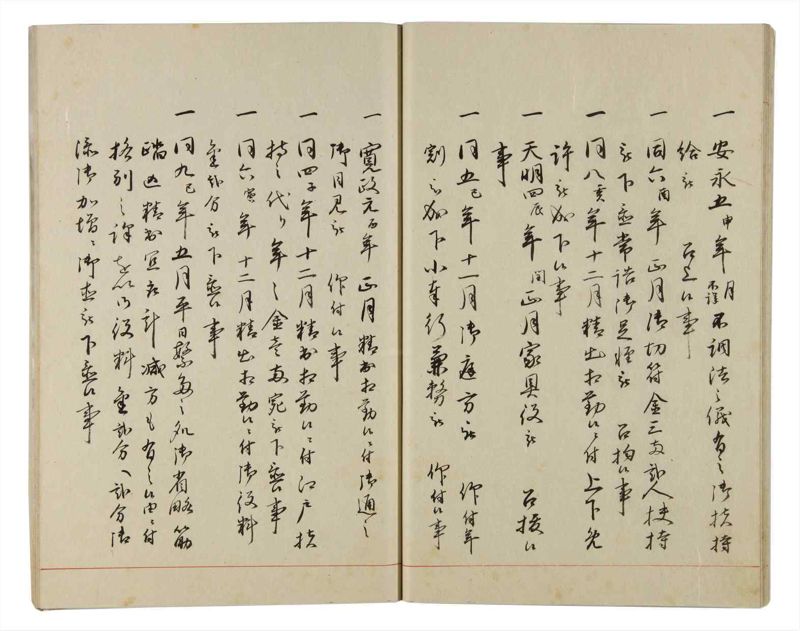 一 安永五申年 月 不調法之儀有之御扶持
給被 召上候事
一 同六酉年 正月御切符金三両弐人扶持
被下置常詰御足軽被 召抱候事
一 同八亥年 十二月精出相勤候ニ付上下免
許被成下候事
一 天明四辰年 閏正月家具役被 召抱候
事
一 同五巳年 十一月御庭方被 仰付年
割被成下小奉行兼務被 仰付候事
一 寛政元酉年 正月精出相勤候ニ付御通之
御目見被 仰付候事
一 同四子年 十二月精出相勤候ニ付江戸扶
持之代り年々金壱両宛被下置候事
一 同六寅年 十二月精出相勤候ニ付御役料
金弐分被下置候事
一 同九巳年 五月平日繁多之処御省略筋
踏込精出宜敷計減方も有之候由ニ付
格別之訳を以御役料金弐分へ弐分御
添御加増ニ御直被下置候事